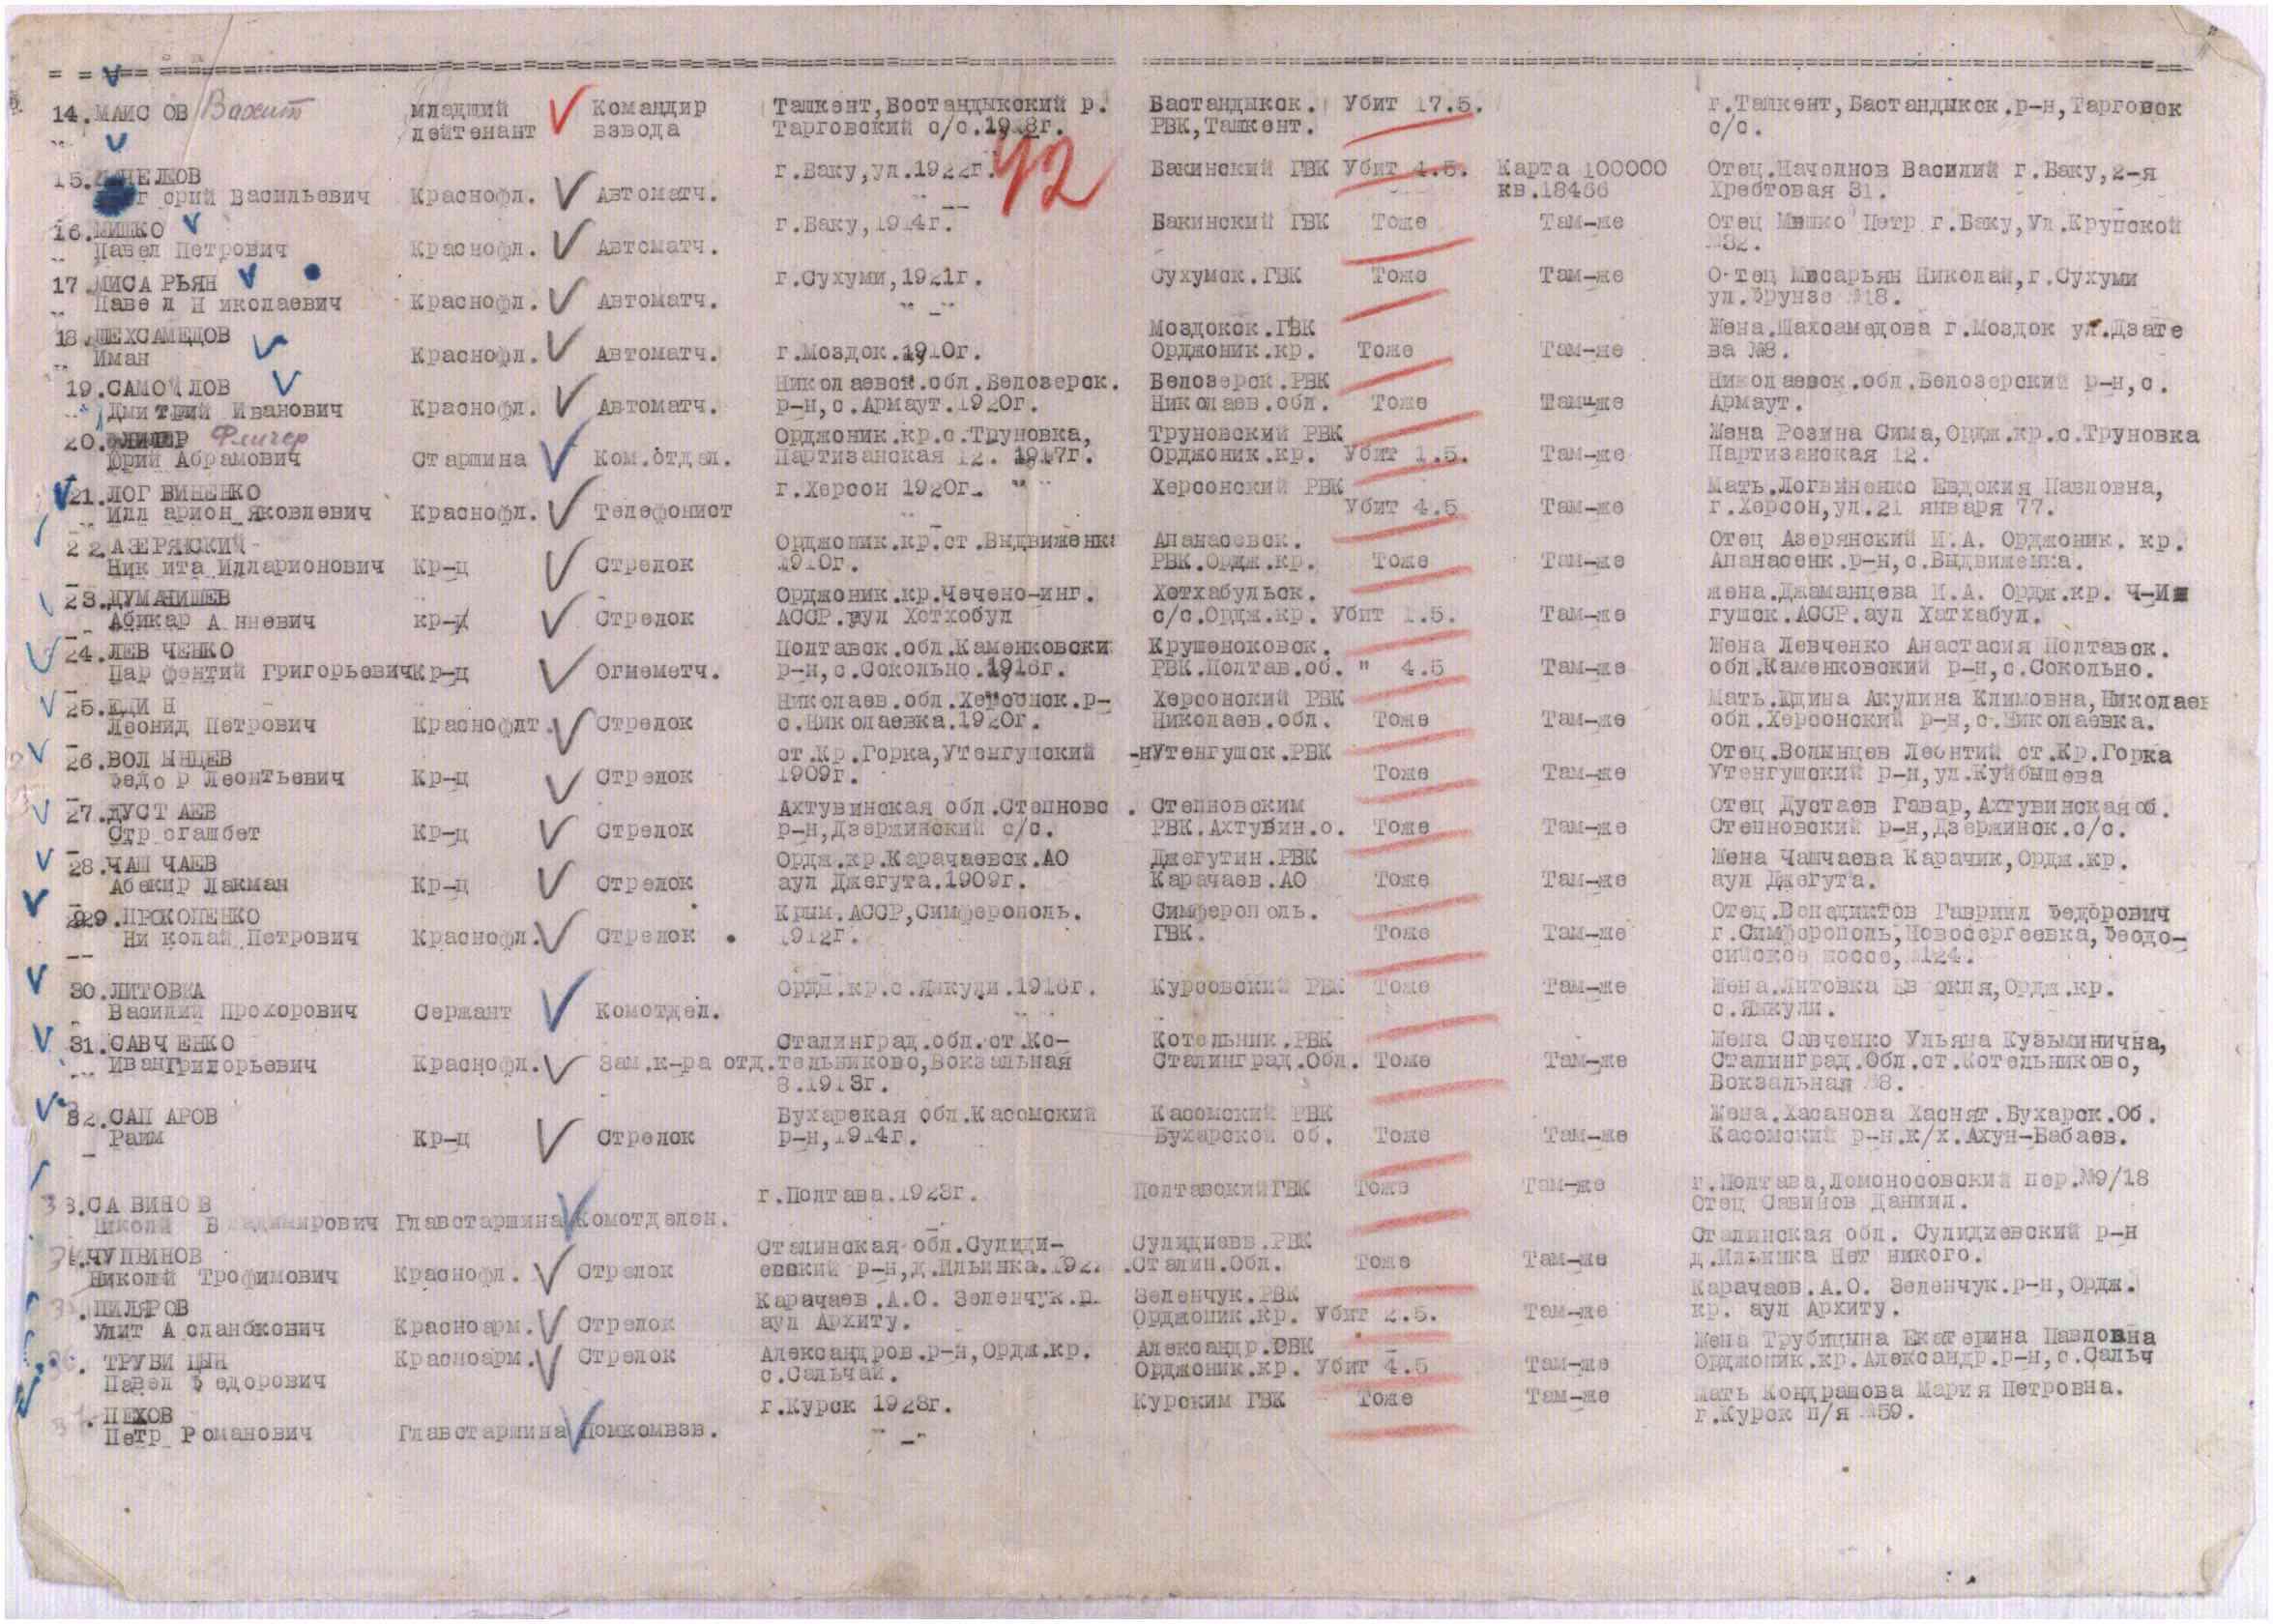 14.МАИСОВ Вахит младший Командир Ташкент,Востандыкский р. Бастандыкск. Убит 17.5. г.Ташкент,Бастандыкск.р-н,Тарговск
лейтенант взвода Тарговский с/с.1918г. РВК,Ташкент. с/с.
42
15. г.Баку,ул.1922г. Бакинский ГВК Убит 4.5. Карта 100000 Отец.Начелнов Василий г.Баку,2-я
Васильевич Краснофл. Автоматч. кв.18466 Хребтовая 31.
16.МИШКО г.Баку,1914г. Бакинский ГВК Тоже Там-же Отец Мишко Петр г.Баку,Ул.Крупской
Павел Петрович Краснофл. Автоматч. №32.
17.МИСАРЬЯН г.Сухуми,1921г. Сухумск.ГВК Тоже Там-же О-тец Мисарьян Николай,г.Сухуми
Павел Николаевич Краснофл. Автоматч. ул.Фрунзе №18.
18.ШЕХСАМЕДОВ Моздокск.ГВК Жена.Шахсамедова г.Моздок ул.Дзате
Иман Краснофл. Автоматч. г.Моздок.1910г. Орджоник.кр. Тоже Там-же ва №8.
19.САМОЙЛОВ Николаевск.обл.Белозерск. Белозерск.РВК Николаевск.обл.Белозерский р-н,с.
Дмитрий Иванович Краснофл. Автоматч. р-н,с.Армаут.1920г. Николаев.обл. Тоже Там-же Армаут.
20. Фличер Орджоник.кр.с.Труновка, Труновский РВК Жена Розина Сима,Ордж.кр.с.Труновка
Юрий Абрамович Старшина Ком.отдел. Партизанская 12. 1917г. Орджоник.кр. Убит 1.5. Там-же Партизанская 12.
21.ЛОГВИНЕНКО г.Херсон 1920г. Херсонский РВК Мать.Логвиненко Евдокия Павловна,
Илларион Яковлевич Краснофл. Телефонист Убит 4.5 Там-же г.Херсон,ул.21 января 77.
22.АЗЕРЯНСКИЙ Орджоник.кр.ст.Выдвиженка Апанасовск. Отец Азерянский И.А. Орджоник. кр.
Никита Илларионович Кр-ц Стрелок 1910г. РВК.Ордж.кр. Тоже Там-же Апанасенк.р-н,с.Выдвиженка.
23.ДУМАНИШЕВ Орджоник.кр.Чечено-инг. Хотхабульск. жена.Джаманцева И.А. Ордж.кр. Ч-Ин
Абикар Анневич кр-ц Стрелок АССР.аул Хотхобул с/с.Ордж.кр. Убит 1.5. Там-же гушск.АССР.аул Хатхабул.
24.ЛЕВЧЕНКО Полтавск.обл.Каменковски Крушеноковск. Жена Левченко Анастасия Полтавск.
Парфентий Григорьевич Кр-ц Огнеметч. р-н,с.Сокольно.1916г. РВК.Полтав.об. " 4.5 Там-же обл.Каменковский р-н,с.Сокольно.
25.ЮДИН Николаев.обл.Херсонск.р- Херсонский РВК Мать.Юдина Акулина Климовна,Николаев
Леонид Петрович Краснофлт. Стрелок с.Николаевка.1920г. Николаев.обл. Тоже Там-же обл.Херсонский р-н,с.Николаевка.
26.ВОЛЫНЦЕВ ст.Кр.Горка,Утенгушский -нУтенгушск.РВК Отец.Волынцев Леонтий ст.Кр.Горка
Федор Леонтьевич Кр-ц Стрелок 1909г. Тоже Там-же Утенгушский р-н,ул.Куйбышева
27.ДУСТАЕВ Ахтувинская обл.Степново . Степновским Отец Дустаев Гавар,Ахтувинскаяоб.
Строгашбет Кр-ц Стрелок р-н,Дзержинский с/с. РВК.Ахтубин.о. Тоже Там-же Степновский р-н,Дзержинск.с/с.
28.ЧАШЧАЕВ Ордж.кр.Карачаевск.АО Джегутин.РВК Жена Чашчаева Карачик,Ордж.кр.
Абекир Лакман Кр-ц Стрелок аул Джегута.1909г. Карачаев.АО Тоже Там-же аул Джегута.
29.ПРОКОПЕНКО Крым.АССР,Симферополь. Симферополь. Отец.Венедиктов Гавриил Федорович
Николай Петрович Краснофл. Стрелок 1912г. ГВК. Тоже Там-же г.Симферополь,Новосергеевка,Феодо-
сийское шоссе,№124.
30.ЛИТОВКА Ордж.кр.с.Яшкули.1916г. Курсовский РВК Тоже Там-же Жена.Литовка Ев окия,Ордж.кр.
Василий Прохорович Сержант Комотдел. с.Яшкули.
31.САВЧЕНКО Сталинград.обл.ст.Ко- Котельник.РВК Жена Савченко Ульяна Кузьминична,
ИванГригорьевич Краснофл. Зам.к-ра отд.тельниково,Вокзальная Сталинград.Обл. Тоже Там-же Сталинград.Обл.ст.Котельниково,
8.1913г. Вокзальная №8.
32.САПАРОВ Бухарская обл.Касомский Касомский РВК Жена.Хасанова Хаснят.Бухарск.Об.
Раим Кр-ц Стрелок р-н,1914г. Бухарской об. Тоже Там-же Касомский р-н.к/х.Ахун-Бабаев.
33.САВИНОВ г.Полтава.1923г. ПолтавскийГВК Тоже Там-же г.Полтава,Ломоносовский пер.№9/18
Николай Владимирович Главстаршина Комотделен. Отец Савинов Даниил.
34.ЧУПВИНОВ Сталинская обл.Сулиди- Сулидиевв.РВК Сталинская обл. Сулидиевский р-н
Николай Трофимович Краснофл. Стрелок евский р-н,д.Ильинка.192 .Сталин.Обл. Тоже Там-же д.Ильинка Нет никого.
. ПИЛЯРОВ Карачаев.А.О. Зеленчук.р. Зеленчук.РВК Карачаев.А.О. Зеленчук.р-н,Ордж.
Умит Асланбкович Красноарм. Стрелок аул Архиту. Орджоник.кр. Убит 2.5. Там-же кр. аул Архиту.
36. ТРУБИЦЫН Красноарм. Стрелок Александров.р-н,Ордж.кр. Александр.РВК Жена Трубицына Екатерина Павловна
Павел Федорович с.Сальчай. Орджоник.кр. Убит 4.5 Там-же Орджоник.кр.Александр.р-н,с.Сальч
. ПЕХОВ г.Курск 1923г. Курским ГВК Тоже Там-же Мать Кондрашова Мария Петровна.
Петр Романович Главстаршина Помкомвзв. г.Курск п/я №59.